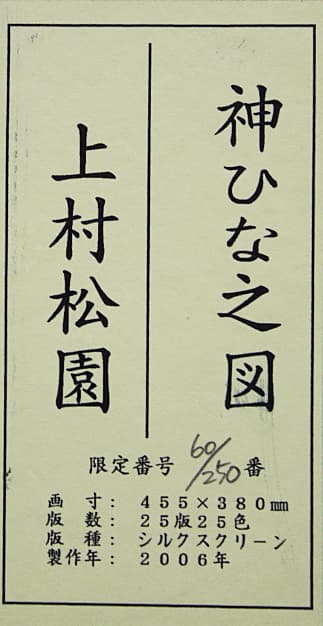 神ひな之図
上村松園
限定番号 60/250番
画　寸： ４５５×３８０㎜
版　数： ２５版２５色
版　種： シルクスクリーン
製作年： ２００６年